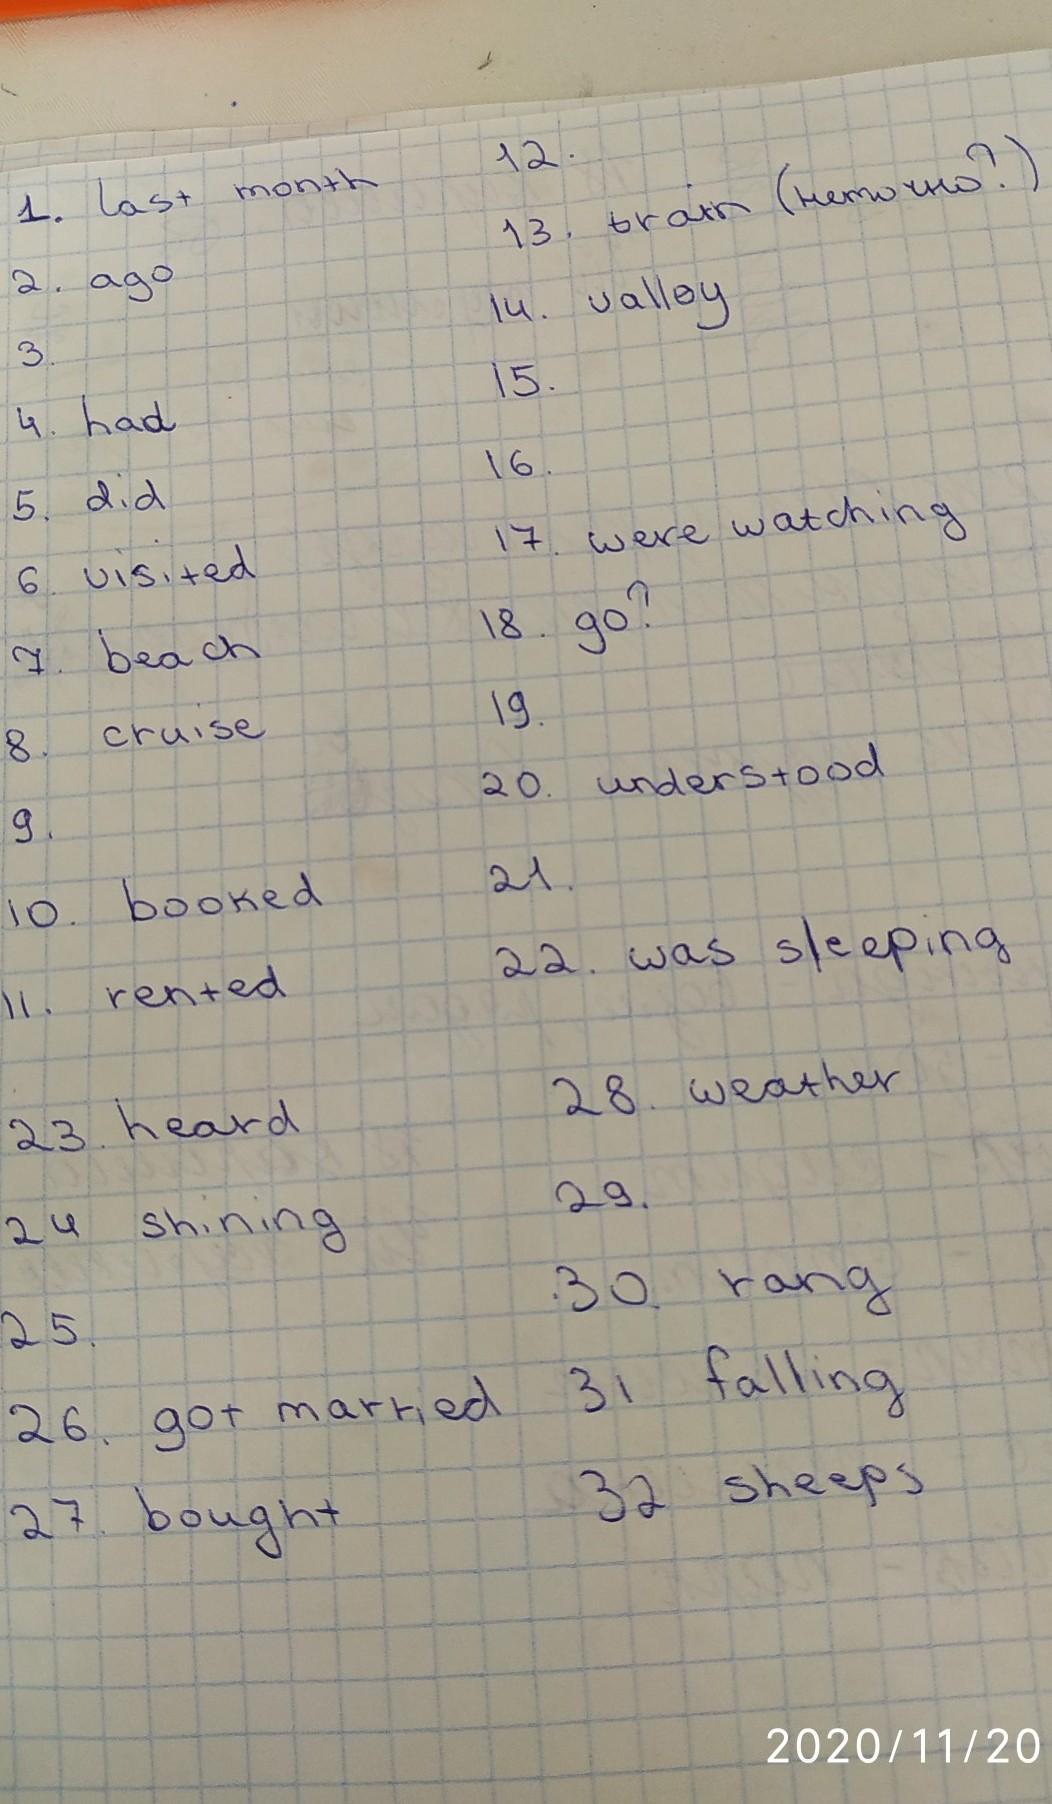 1. last month
2. ago
3.
4. had
5. did
6. visited
7. beach
8. cruise
9.
10. booked
11. rented
12.
13. (неточно?)
14. valley
15.
16.
17. were watching
18. go?
19.
20. understood
21.
22. was sleeping
23. heard
24 shining
25.
26. got married
27. bought
28. weather
29.
30. rang
31 falling
32 sheeps
2020/11/20